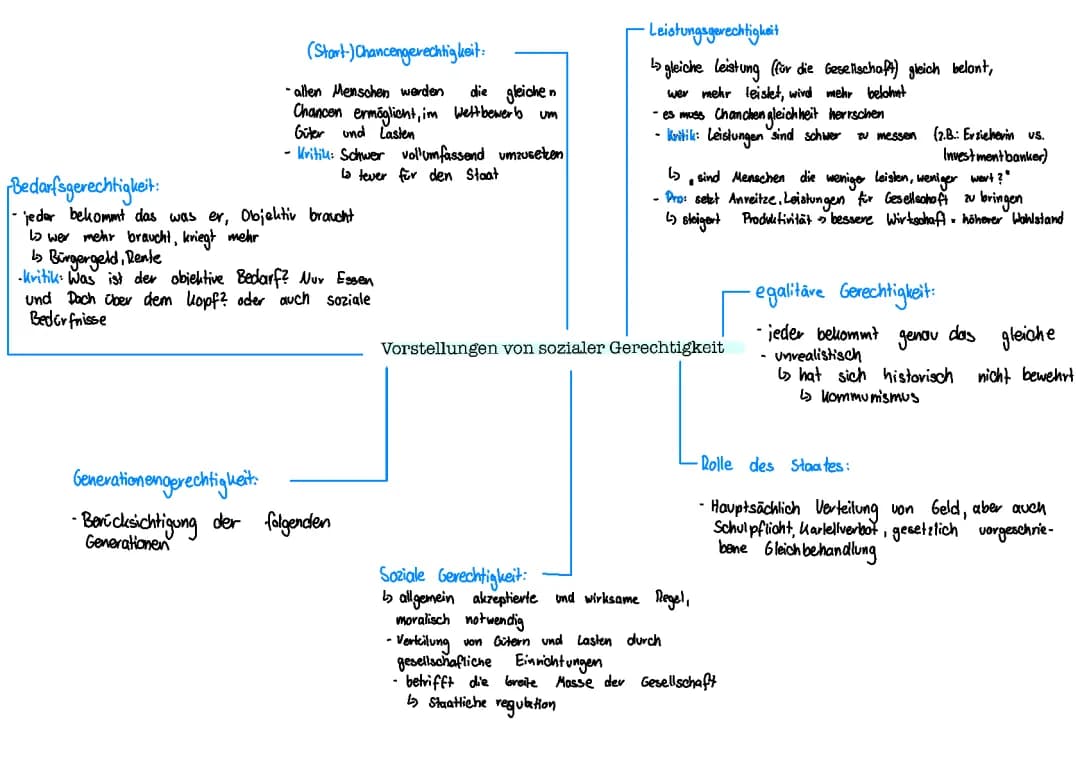 (Start-)Chancengerechtigkeit:
- allen Menschen werden die gleichen
Chancen ermöglicht, im Wettbewerb um
Güter und Lasten
- Kritik: Schwer vollumfassend umzusetzen
↳ teuer für den Staat
Leistungsgerechtigkeit
↳ gleiche Leistung (für die Gesellschaft) gleich belont,
wer mehr leistet, wird mehr belohnt
- es muss Chanchengleichheit herrschen
- Kritik: Leistungen sind schwer zu messen (z.B.: Erzieherin vs.
Investmentbanker)
↳ „sind Menschen die weniger leisten, weniger wert?"
- Pro: setzt Anreitze, Leistungen für Gesellschaft zu bringen
↳ steigert Produktivität → bessere Wirtschaft = höherer Wohlstand
Bedarfsgerechtigkeit:
- jeder bekommt das was er, Objektiv braucht
↳ wer mehr braucht, kriegt mehr
↳ Bürgergeld, Rente
- Kritik: Was ist der objektive Bedarf? Nur Essen
und Dach über dem Kopf? oder auch soziale
Bedürfnisse
egalitäre Gerechtigkeit:
- jeder bekommt genau das gleiche
- unrealistisch
↳ hat sich historisch nicht bewehrt
↳ Kommunismus
Vorstellungen von sozialer Gerechtigkeit
Generationengerechtigkeit:
- Berücksichtigung der folgenden
Generationen
Rolle des Staates:
- Hauptsächlich Verteilung von Geld, aber auch
Schulpflicht, Kartellverbot, gesetzlich vorgeschrie-
bene Gleichbehandlung
Soziale Gerechtigkeit:
↳ allgemein akzeptierte und wirksame Regel,
moralisch notwendig
- Verteilung von Gütern und Lasten durch
gesellschafliche Einrichtungen
- betrifft die breite Masse der Gesellschaft
↳ Staatliche regulation